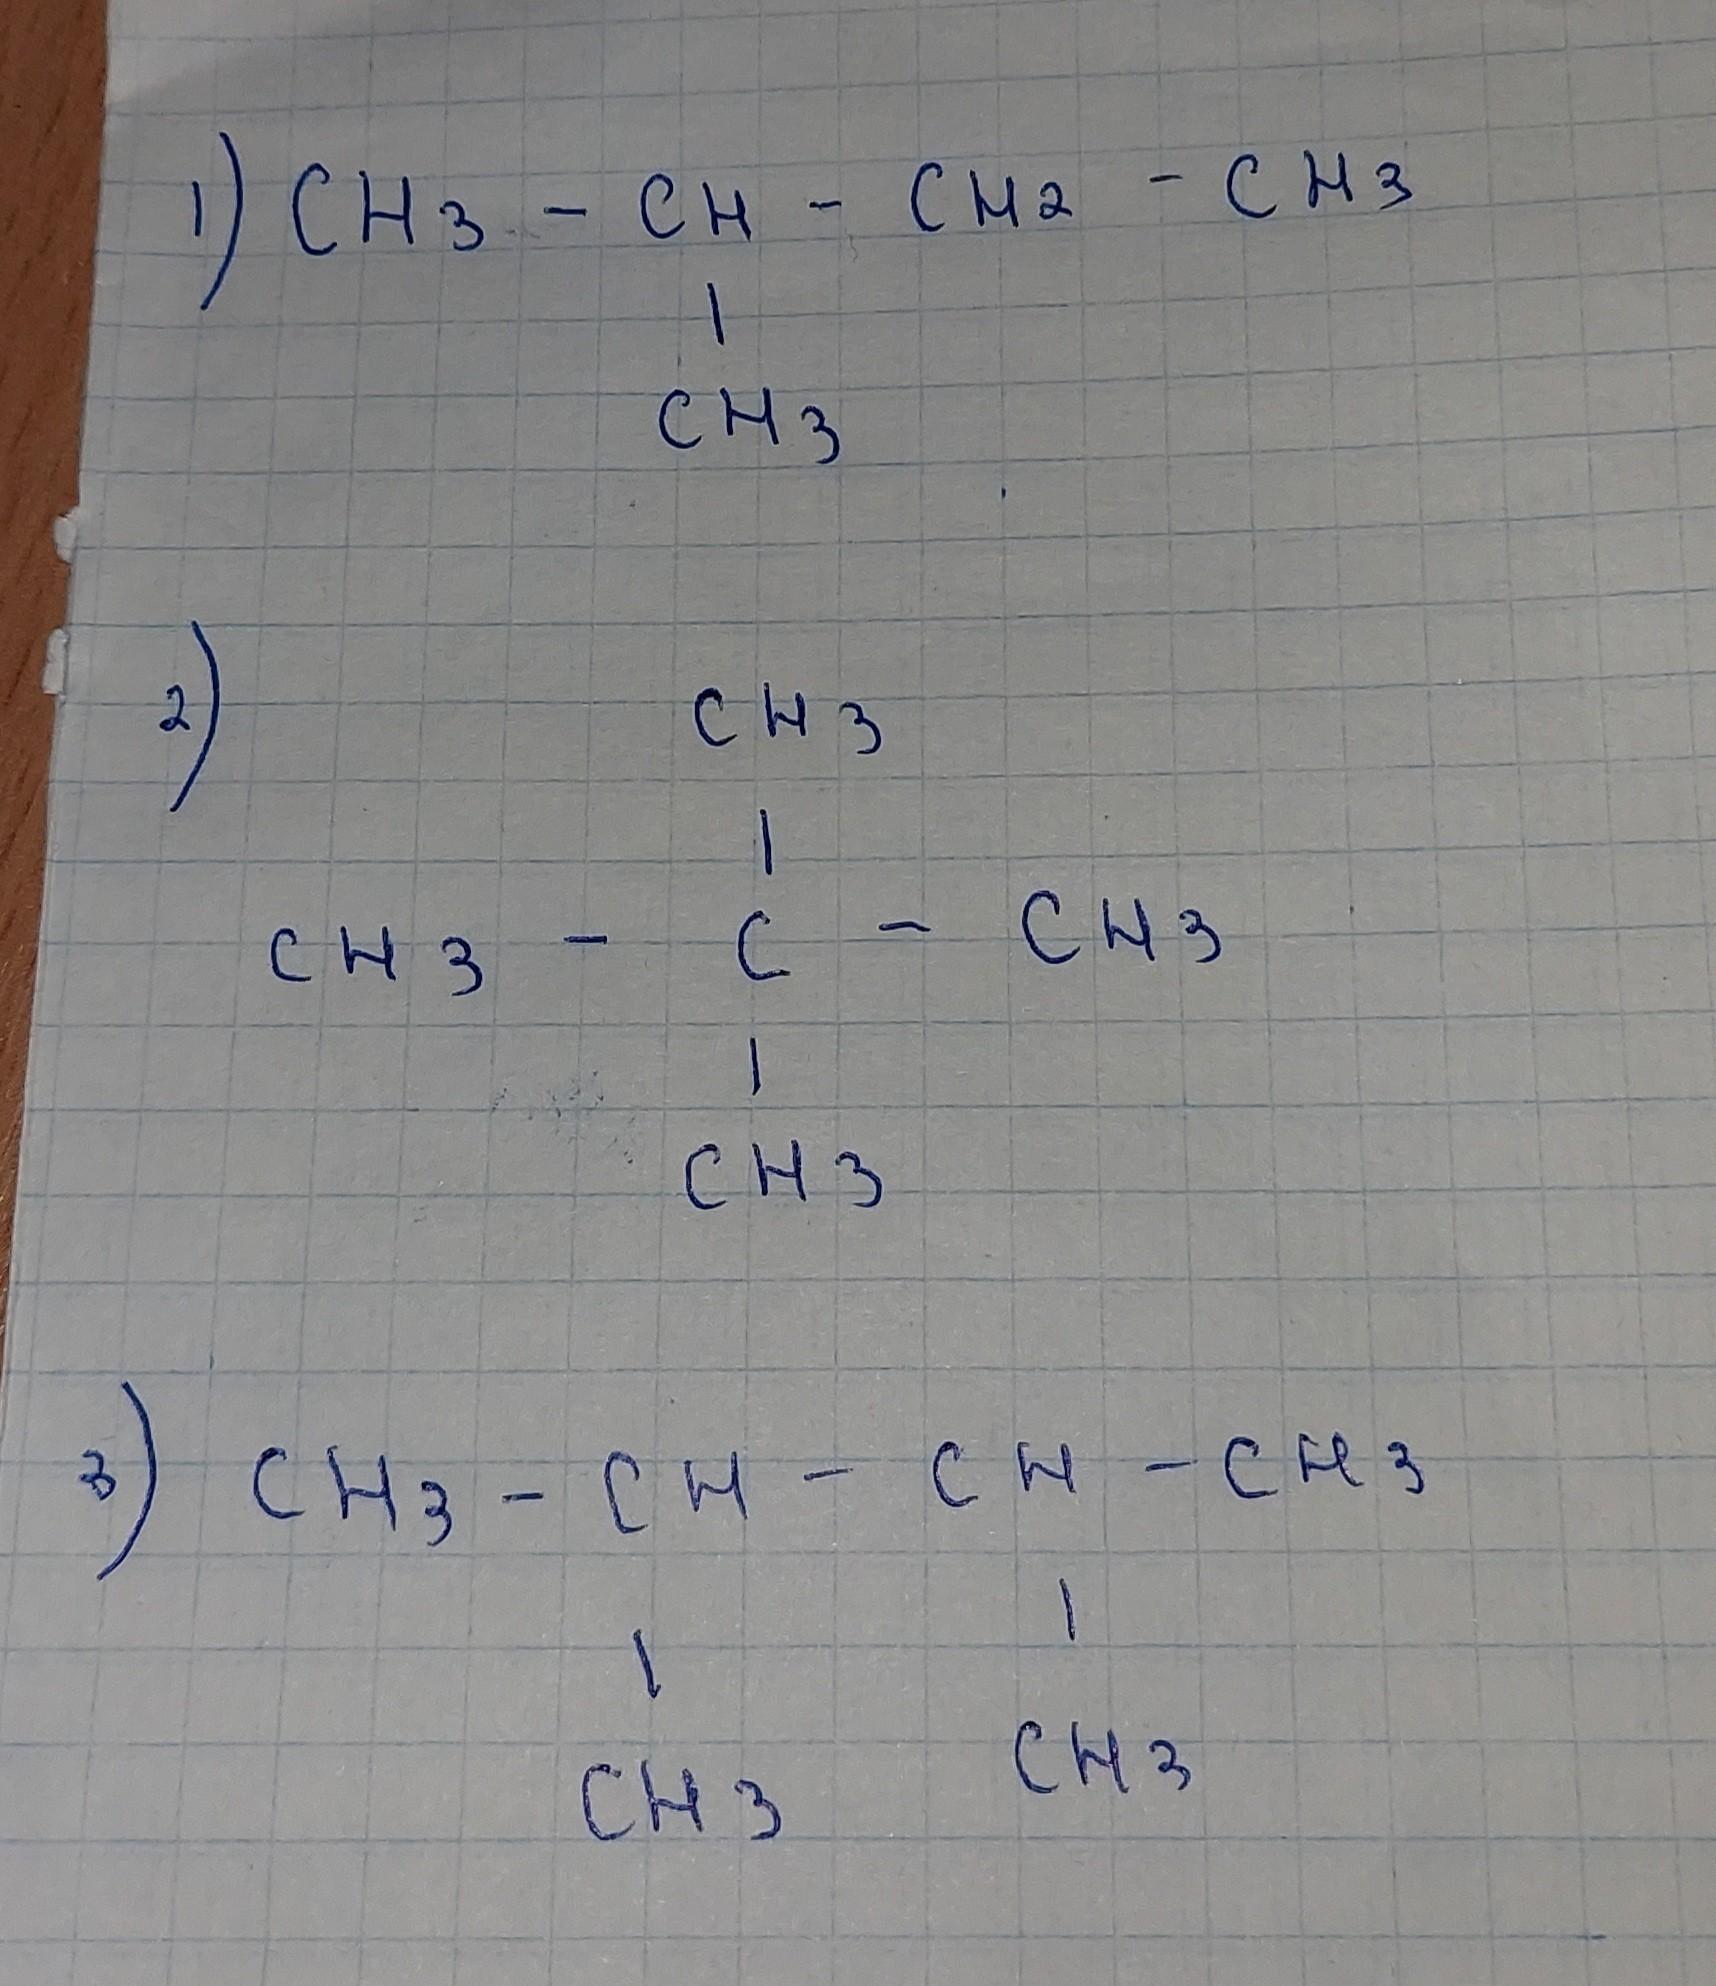 1) CH3 - CH - CH2 - CH3
|
CH3
2)
CH3
|
CH3 - C - CH3
|
CH3
3) CH3 - CH - CH - CH3
| |
CH3 CH3